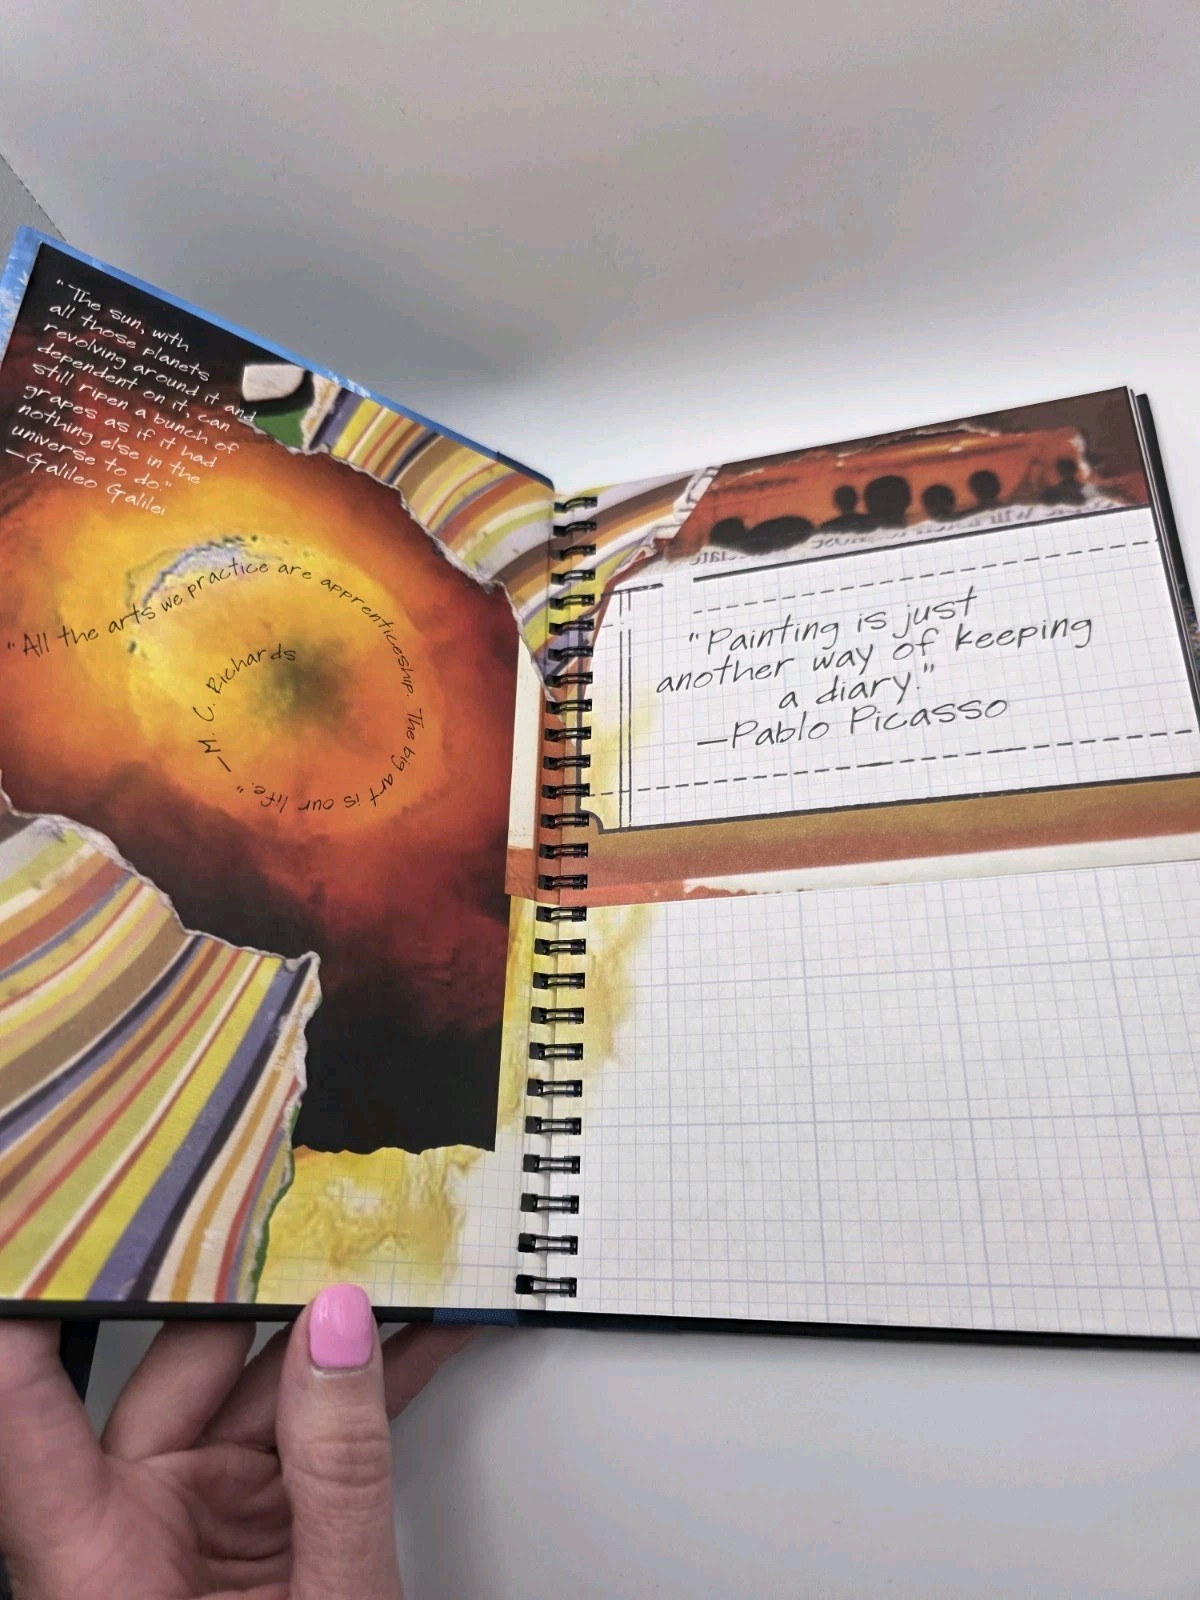 "The sun, with
all those planets
revolving around it and
dependent on it, can
still ripen a bunch of
grapes as if it had
nothing else in the
universe to do."
—Galileo Galilei
"All the arts we practice are apprenticeship. The big art is our life." —M. C. Richards
"Painting is just
another way of keeping
a diary."
—Pablo Picasso